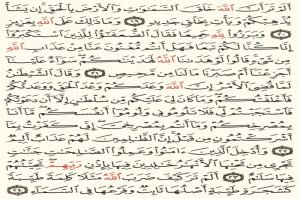 أَلَمْ تَرَ أَنَّ ٱللَّهَ خَلَقَ ٱلسَّمَٰوَٰتِ وَٱلْأَرْضَ بِٱلْحَقِّ إِن يَشَأْ
يُذْهِبْكُمْ وَيَأْتِ بِخَلْقٍ جَدِيدٍ ١٩ وَمَا ذَٰلِكَ عَلَى ٱللَّهِ بِعَزِيزٍ
٢٠ وَبَرَزُوا۟ لِلَّهِ جَمِيعًا فَقَالَ ٱلضُّعَفَٰٓؤُا۟ لِلَّذِينَ ٱسْتَكْبَرُوٓا۟
إِنَّا كُنَّا لَكُمْ تَبَعًا فَهَلْ أَنتُم مُّغْنُونَ عَنَّا مِنْ عَذَابِ ٱللَّهِ
مِن شَىْءٍ قَالُوا۟ لَوْ هَدَىٰنَا ٱللَّهُ لَهَدَيْنَٰكُمْ سَوَآءٌ عَلَيْنَآ
أَجَزِعْنَآ أَمْ صَبَرْنَا مَا لَنَا مِن مَّحِيصٍ ٢١ وَقَالَ ٱلشَّيْطَٰنُ
لَمَّا قُضِىَ ٱلْأَمْرُ إِنَّ ٱللَّهَ وَعَدَكُمْ وَعْدَ ٱلْحَقِّ وَوَعَدتُّكُمْ
فَأَخْلَفْتُكُمْ وَمَا كَانَ لِىَ عَلَيْكُم مِّن سُلْطَٰنٍ إِلَّآ أَن دَعَوْتُكُمْ
فَٱسْتَجَبْتُمْ لِى فَلَا تَلُومُونِى وَلُومُوٓا۟ أَنفُسَكُم مَّآ أَنَا۠
بِمُصْرِخِكُمْ وَمَآ أَنتُم بِمُصْرِخِىَّ إِنِّى كَفَرْتُ بِمَآ
أَشْرَكْتُمُونِ مِن قَبْلُ إِنَّ ٱلظَّٰلِمِينَ لَهُمْ عَذَابٌ أَلِيمٌ
٢٢ وَأُدْخِلَ ٱلَّذِينَ ءَامَنُوا۟ وَعَمِلُوا۟ ٱلصَّٰلِحَٰتِ جَنَّٰتٍ
تَجْرِى مِن تَحْتِهَا ٱلْأَنْهَٰرُ خَٰلِدِينَ فِيهَا بِإِذْنِ رَبِّهِمْ تَحِيَّتُهُمْ
فِيهَا سَلَٰمٌ ٢٣ أَلَمْ تَرَ كَيْفَ ضَرَبَ ٱللَّهُ مَثَلًا كَلِمَةً طَيِّبَةً
كَشَجَرَةٍ طَيِّبَةٍ أَصْلُهَا ثَابِتٌ وَفَرْعُهَا فِى ٱلسَّمَآءِ ٢٤